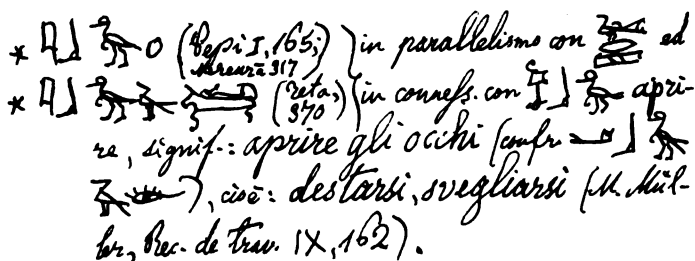 * (Pepi I, 165; Merenrā 317) in parallelismo con ed
* (Teta, 370) in conness. con apri-
re, signif.: aprire gli occhi (confr.
), cioè: destarsi, svegliarsi (M. Mül-
ler, Rec. de trav. IX, 162).